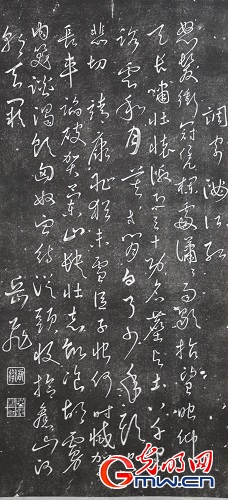 調寄滿江紅
怒髮衝冠憑欄處瀟瀟雨歇抬望眼仰
天長嘯壯懷激烈三十功名塵與土八千
路雲和月莫等閒白了少年頭
悲切 靖康恥猶未雪臣子恨何時滅駕
長車踏破賀蘭山缺壯志飢餐胡虜
肉笑談渴飲匈奴血待從頭收拾舊山河
朝天闕
岳飛
光明网